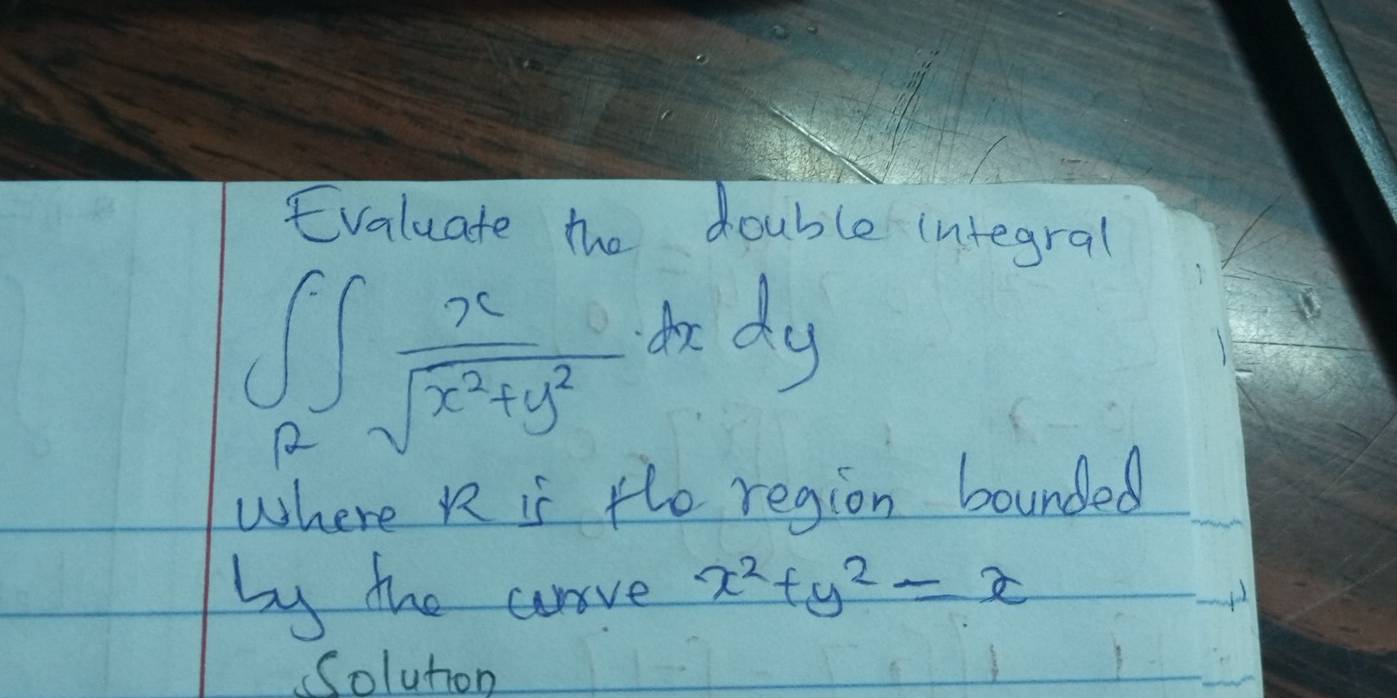 Evaluate the double integral
∬_R x/√(x²+y²) · dx dy
where R is the region bounded
by the curve x²+y² = x
Solution